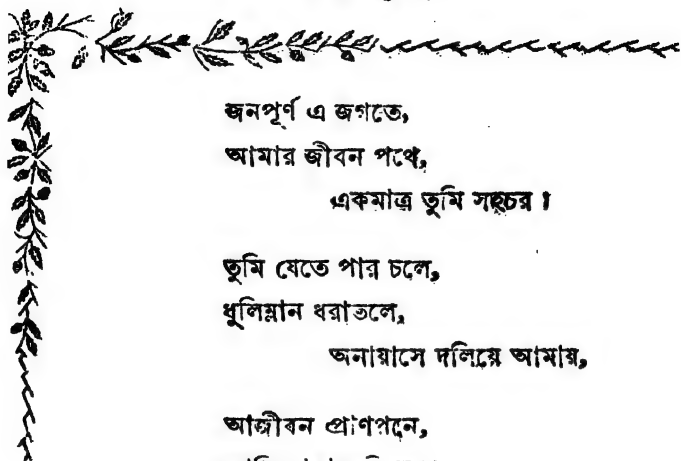 জনপূর্ণ এ জগতে,
আমার জীবন পথে,
একমাত্র তুমি সহচর।
তুমি যেতে পার চলে,
ধুলিম্লান ধরাতলে,
অনায়াসে দলিয়ে আমায়,
আজীবন প্রাণপনে,